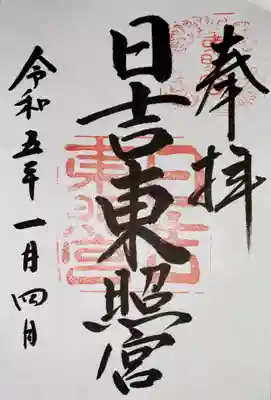 奉拝
日吉東照宮
令和五年一月四日